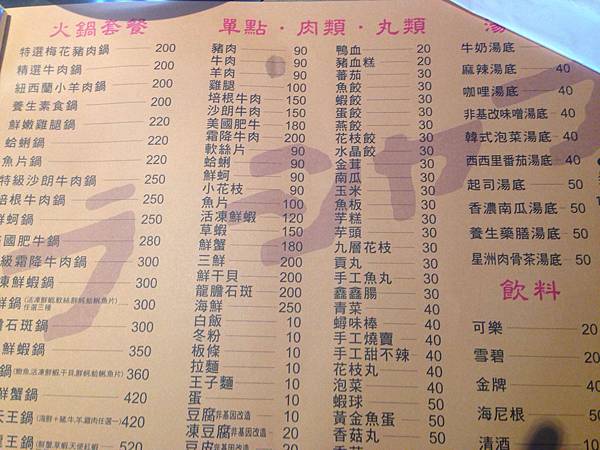 火鍋套餐
特選梅花豬肉鍋 200
精選牛肉鍋 200
紐西蘭小羊肉鍋 200
養生素食鍋 200
鮮嫩雞腿鍋 220
蛤蜊鍋 220
魚片鍋 220
特級沙朗牛肉鍋 250
培根牛肉鍋 250
鮮蚵鍋 250
國肥牛鍋 280
級霜降牛肉鍋 300
凍鮮蝦鍋 300
300
石斑鍋 300
鮮蝦鍋 350
鍋 360
鮮蟹鍋 420
天王鍋 420
王鍋 520
單點・肉類・丸類
豬肉 90
牛肉 90
羊肉 90
雞腿 100
培根牛肉 150
沙朗牛肉 150
美國肥牛 180
霜降牛肉 200
軟絲片 90
蛤蜊 90
鮮蚵 90
小花枝 90
魚片 100
活凍鮮蝦 120
草蝦 150
鮮蟹 180
三鮮 200
鮮干貝 200
龍膽石斑 200
海鮮 250
白飯 10
冬粉 10
板條 10
拉麵 10
王子麵 10
蛋 10
豆腐非基因改造 10
凍豆腐非基因改造 20
豆皮非基因改造 20
鴨血 20
豬血糕 20
蕃茄 30
魚餃 30
蝦餃 30
蛋餃 30
燕餃 30
花枝餃 30
水晶餃 30
金茸 30
南瓜 30
玉米 30
魚板 30
芋糕 30
芋頭 30
九層花枝 30
貢丸 30
手工魚丸 30
鑫鑫腸 30
青菜 40
蟳味棒 40
手工燒賣 40
手工甜不辣 40
花枝丸 40
泡菜 40
蝦球 50
黃金魚蛋 50
香菇丸 50
湯
牛奶湯底
麻辣湯底 40
咖哩湯底 40
非基改味噌湯底 40
韓式泡菜湯底 40
西西里番茄湯底 40
起司湯底 50
香濃南瓜湯底 50
養生藥膳湯底 50
星洲肉骨茶湯底 50
飲料
可樂 20
雪碧 20
金牌 40
海尼根 50
清酒